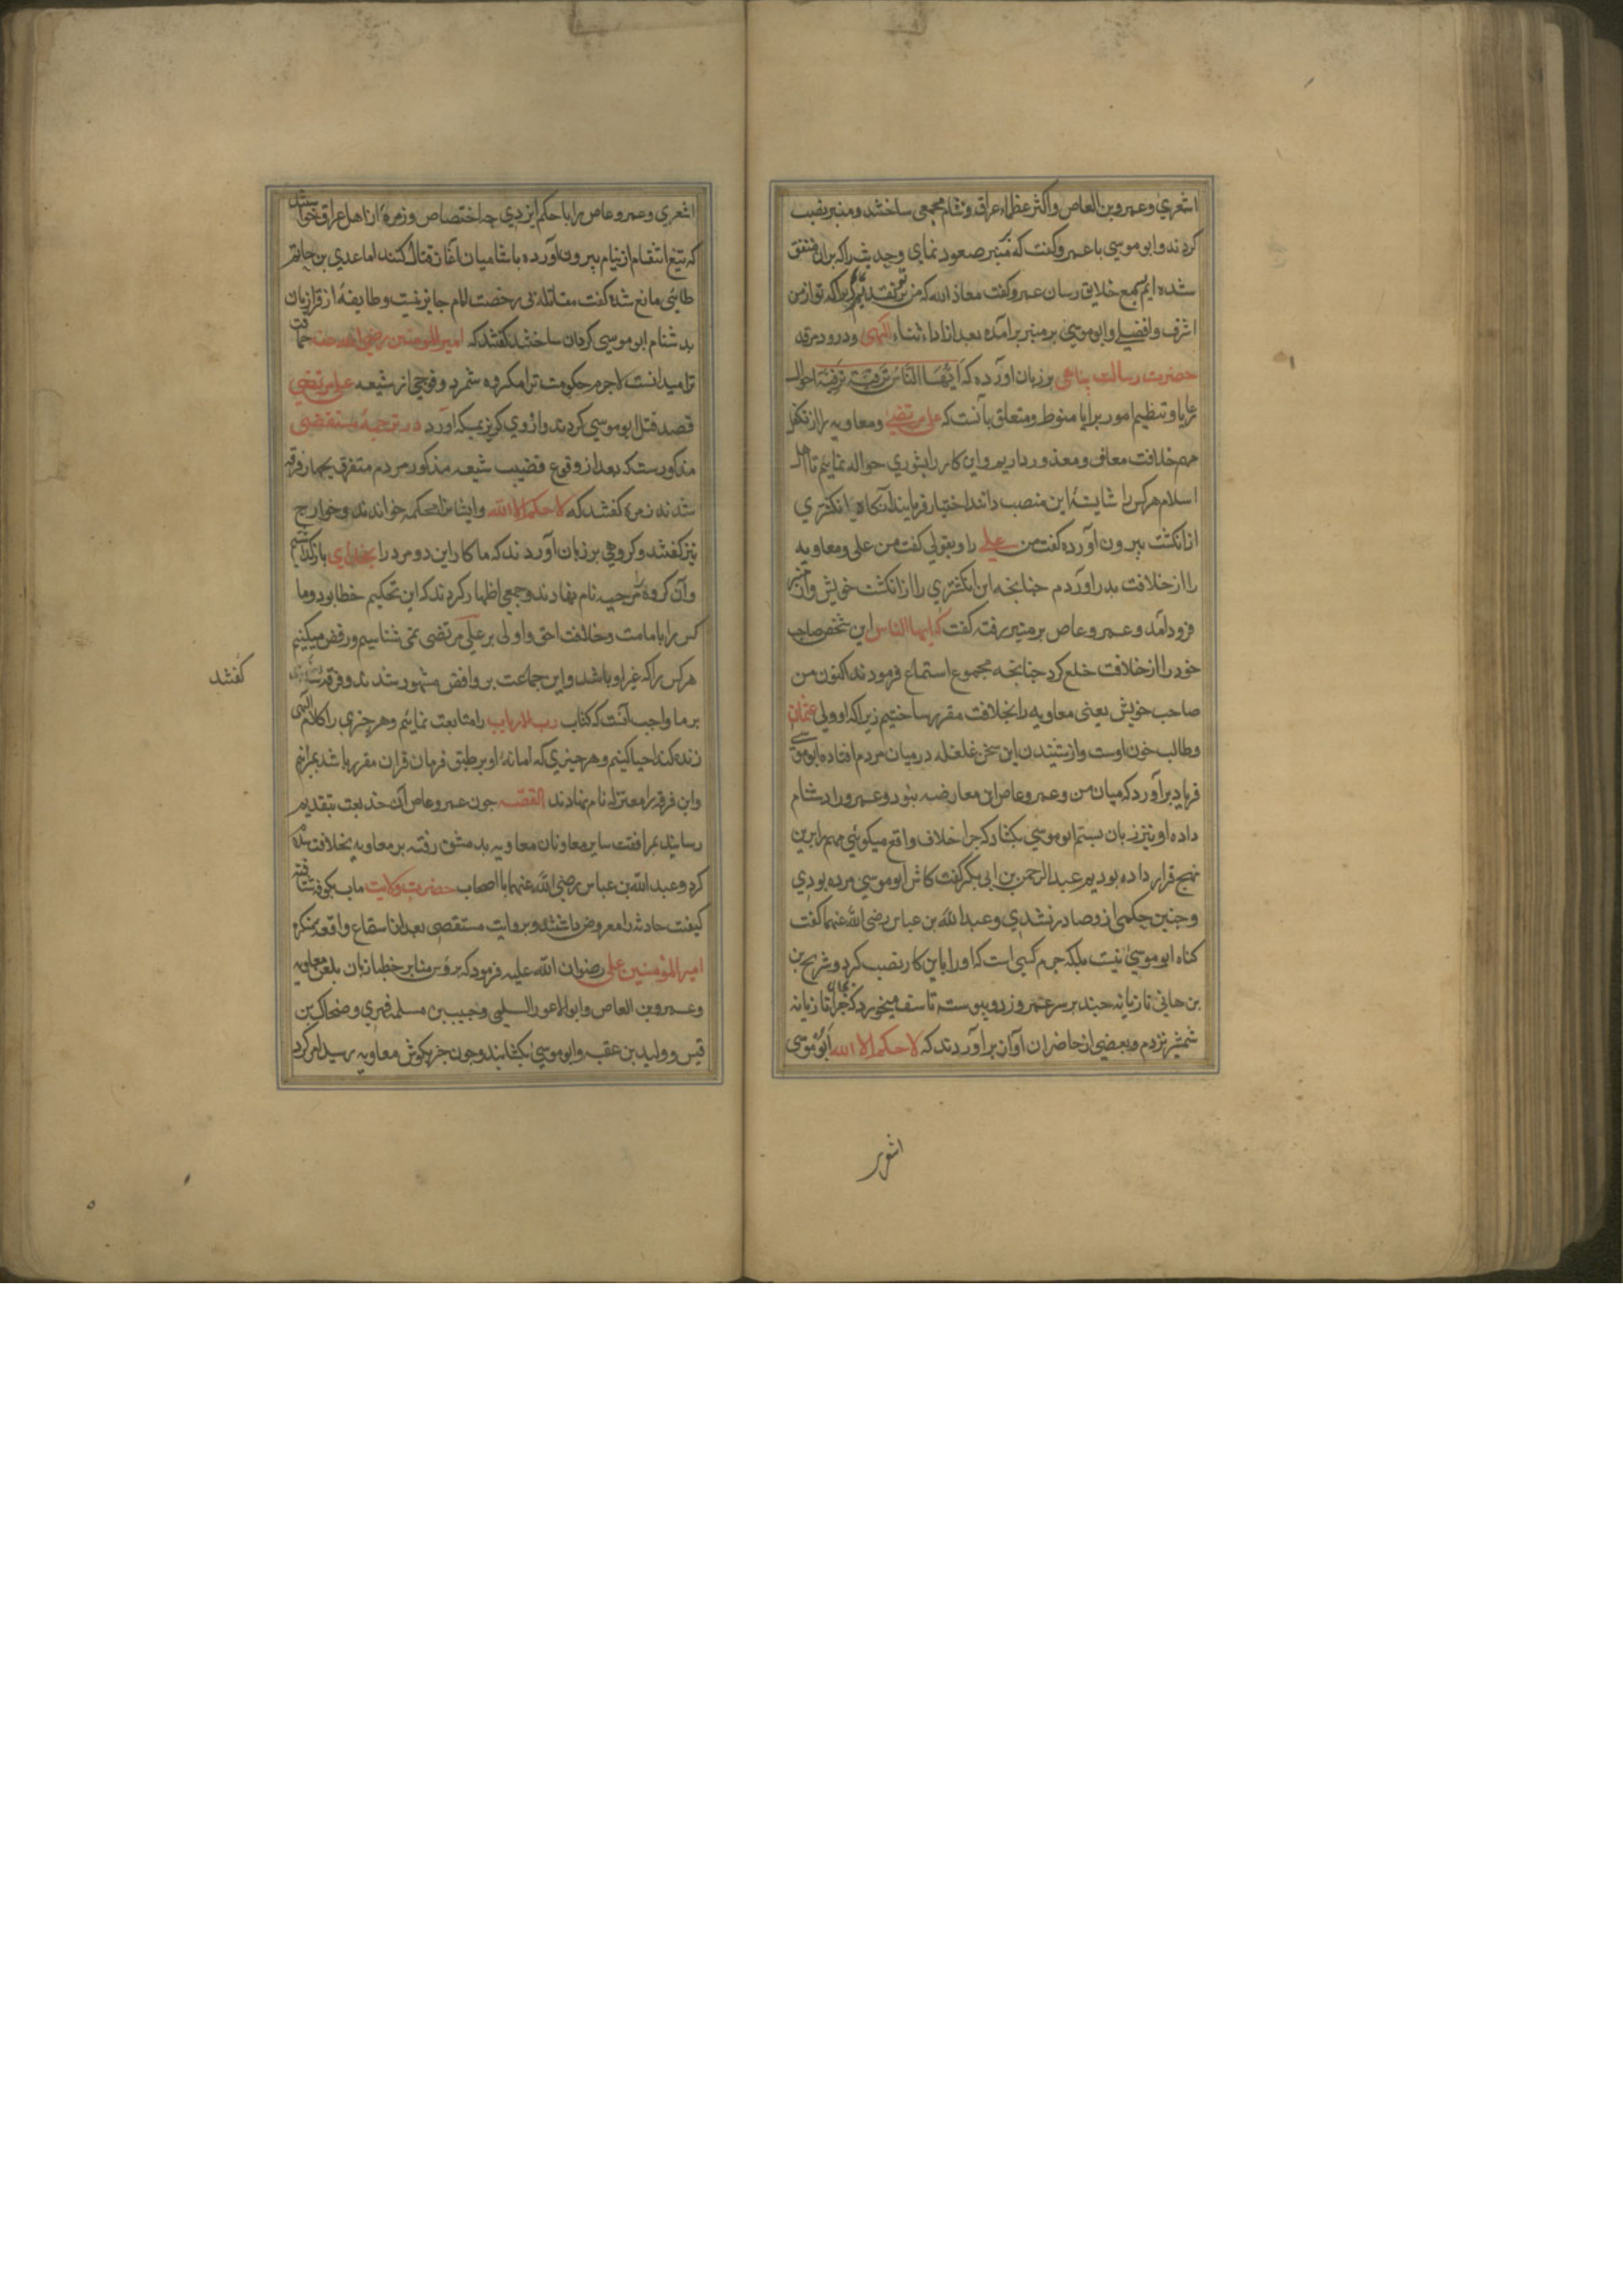 اشعری و عمرو بن العاص و اکثر عظماء عراق و شام مجمعی ساختند و منبر نصب
کردند و ابو موسی با عمرو گفت که بمنبر صعود نمای و حدیثی را که بران متفق
شده ایم بسمع خلایق رسان عمرو گفت معاذ الله که من بر تو تقدیم کنم زیرا که تو از من
اشرف و افضلی و ابو موسی بر منبر برآمده بعد از اداء ثناء الهی و درود مرقد
حضرت رسالت پناهی بر زبان آورده که ایها الناس ترفیه احوال
رعایا و تنظیم امور برایا منوط و متعلق بآنست که علی مرتضی و معاویه را از تکفل
مهم خلافت معاف و معذور داریم و این کار را بشوری حواله نماییم تا اهل
اسلام هر کس را شایستهٔ این منصب دانند اختیار فرمایند آنگاه انکشتری
از انکشت بیرون آورده گفت من علی را و بقولی گفت من علی و معاویه
را از خلافت بدر آوردم چنانچه این انکشتری را از انکشت خویش و از منبر
فرود آمد و عمرو عاص بر منبر رفته گفت که ایها الناس این شخص صاحب
خود را از خلافت خلع کرد چنانچه مجموع استماع فرمودند اکنون من
صاحب خویش یعنی معاویه را بخلافت مقرر ساختیم زیرا که او ولی عثمان
و طالب خون اوست و از شنیدن این سخن غلغله در میان مردم افتاده ابو موسی
فریاد برآورد که میان من و عمرو عاص این معارضه نبود و عمرو را دشنام
داده او نیز زبان بستم ابو موسی بکشاد که چرا خلاف واقع میکوئی مهم را برین
نهج قرار داده بودیم عبد الرحمن بن ابی بکر گفت کاش ابو موسی مرده بودی
و چنین حکمی ازو صادر نشدی و عبد الله بن عباس رضی الله عنهما گفت
کناه ابو موسی نیست بلکه جرم کسی است که او را باین کار نصب کرد و شریح بن
بن هانی تازیانه چند بر سر عمرو زد و پیوسته تاسف میخورد که چرا بجای تازیانه
شمشیر نزدم و بعضی از حاضران آواز برآوردند که لا حکم الا الله ابو موسی
اشعری
اشعری و عمرو عاص را با حکم ایزدی چه اختصاص و زمرهٔ از اهل عراق خواستند
که تیغ انتقام از نیام بیرون آورده با شامیان آغاز قتال کنند اما عدی بن حاتم
طائی مانع شده گفت مقاتله بی رخصت امام جایز نیست و طایفهٔ از قرا زبان
بدشنام ابو موسی کردان ساختند گفتند که امیر المومنین رضی الله عنه حماقت
ترا میدانست لاجرم حکومت ترا مکروه شمرد و فوجی از شیعه علی مرتضی
قصد قتل ابو موسی کردند و ازوی کریز بمکه آورد در ترجمهٔ مستقصی
مذکورست که بعد از وقوع قضیب شیعه مذکور مردم متفرق بچهار فرقه
شدند زمره گفتند که لا حکم الا الله و ایشانرا محکمه خواندند و خوارج
نیز گفتند و کروهی بر زبان آوردند که ما کار این دو مرد را بخدای باز گذاشتیم
و آن کروه مرجیه نام نهادند و جمعی اظهار کردند که این تحکیم خطا بود و ما
کس را بامامت و خلافت احق و اولی بر علی مرتضی نمی شناسیم و رفض میکنیم
هر کس را که غیر او باشد و این جماعت بروافض مشهور شدند و فرقه
گفتند
بر ما واجب آنست که کتاب رب الارباب را متابعت نماییم و هر چیزی را کلام الهی
زنده کند احیا کنیم و هر چیزی که اماتهٔ او بر طبق فرمان قران مقرر باشد بمیرانیم
و این فرقه را معتزله نام نهادند القصه چون عمرو عاص آن خدیعت بتقدیم
رسانید بمرافقت سایر معاونان معاویه بدمشق رفته بر معاویه بخلافت سلام
کرد و عبد الله بن عباس رضی الله عنهما با اصحاب حضرت ولایت ماب بکوفه شتافته
کیفیت حادثه را معروض داشتند و بروایت مستقصی بعد از استماع واقعه منکره
امیر المؤمنین علی رضوان الله علیه فرمود که بر رؤس منابر خطبا زبان بلعن معاویه
و عمرو بن العاص و ابو الاعور السلمی و حبیب بن مسلمه فهری و ضحاک بن
قیس و ولید بن عقبه و ابو موسی بکشایند و چون خبر بکوش معاویه رسید امر کرد